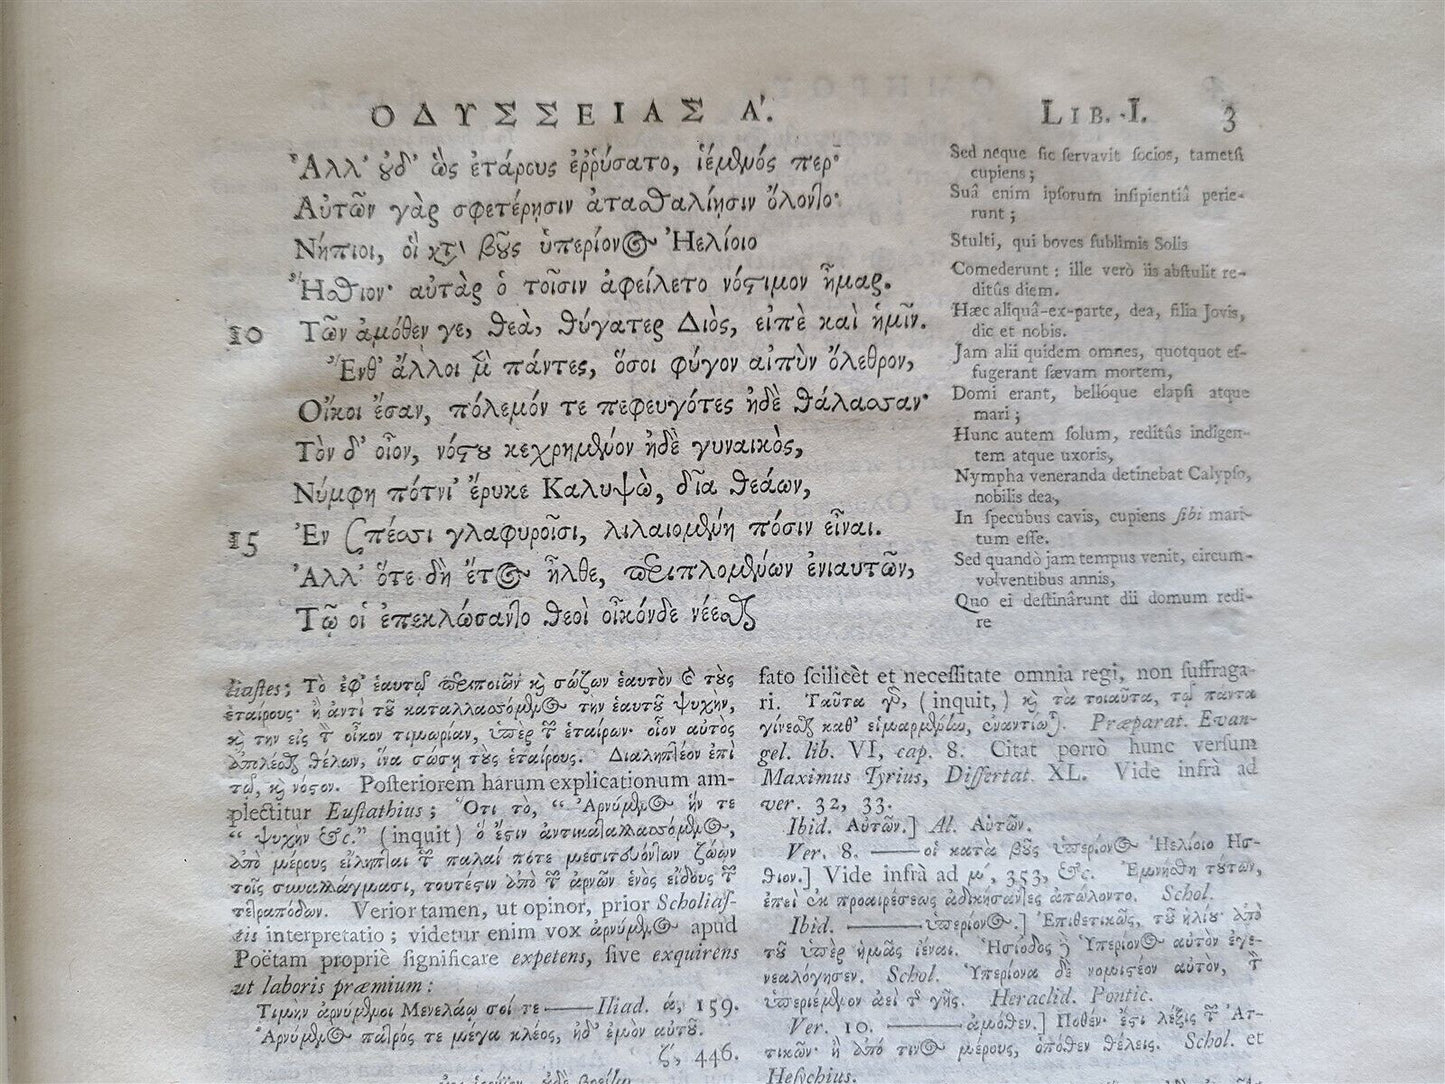 ΟΔΥΣΣΕΙΑΣ Α'. LIB. I. 3
Ἀλλ' ὐδ' ὣς ἑτάρους ἐῤῥύσατο, ἱέμενός περ·
Αὐτῶν γὰρ σφετέρῃσιν ἀτασθαλίῃσιν ὄλοντο·
Νήπιοι, οἳ κτ̀ βοῦς ὑπερίονος Ἠελίοιο
Ἤσθιον· αὐτὰρ ὁ τοῖσιν ἀφείλετο νόστιμον ἦμαρ.
10 Τῶν ἁμόθεν γε, θεὰ, θύγατερ Διὸς, εἰπὲ καὶ ἡμῖν.
Ἔνθ' ἄλλοι μὲν πάντες, ὅσοι φύγον αἰπὺν ὄλεθρον,
Οἴκοι ἔσαν, πόλεμόν τε πεφευγότες ἠδὲ θάλασσαν·
Τὸν δ' οἶον, νόστου κεχρημένον ἠδὲ γυναικὸς,
Νύμφη πότνι' ἔρυκε Καλυψὼ, δῖα θεάων,
15 Ἐν σπέσσι γλαφυροῖσι, λιλαιομένη πόσιν εἶναι.
Ἀλλ' ὅτε δὴ ἔτος ἦλθε, περιπλομένων ἐνιαυτῶν,
Τῷ οἱ ἐπεκλώσαντο θεοὶ οἶκόνδε νέεσθαι
Sed neque sic servavit socios, tametsi
cupiens;
Suâ enim ipsorum insipientiâ perie-
runt;
Stulti, qui boves sublimis Solis
Comederunt: ille verò iis abstulit re-
ditûs diem.
Hæc aliquâ-ex-parte, dea, filia Jovis,
dic et nobis.
Jam alii quidem omnes, quotquot ef-
fugerant sævam mortem,
Domi erant, bellóque elapsi atque
mari;
Hunc autem solum, reditûs indigen-
tem atque uxoris,
Nympha veneranda detinebat Calypso,
nobilis dea,
In specubus cavis, cupiens sibi mari-
tum esse.
Sed quandò jam tempus venit, circum-
volventibus annis,
Quo ei destinârunt dii domum redi-
re
liastes; Τὸ ἐφ' ἑαυτῷ περιποιῶν κὶ σώζων ἑαυτὸν κὶ τοὺς
ἑταίρους· ἢ ἀντὶ τοῦ καταλλασσόμενος τὴν ἑαυτοῦ ψυχὴν,
κὶ τὴν εἰς τ̀ οἶκον τιμωρίαν, ὑπὲρ τ̃ ἑταίρων· οἷον αὐτὸς
ἀπολέσθαι θέλων, ἵνα σώσῃ τοὺς ἑταίρους. Διαληπτέον ἐπὶ
τῷ, κὶ νόστον. Posteriorem harum explicationum am-
plectitur Eustathius; Ὅτι τὸ, “ Ἀρνύμενος ἥν τε
“ ψυχὴν &c.” (inquit) ὅ ἐστιν ἀντικαταλλασσόμενος,
ἀπὸ μέρους εἴληπται τ̃ παλαί ποτε μεσιτευόντων ζώων
τοῖς συναλλάγμασι, τουτέστιν ἀπὸ τ̃ ἀρνῶν ἑνὸς εἴδους τ̃
τετραπόδων. Verior tamen, ut opinor, prior Scholias-
tis interpretatio; videtur enim vox ἀρνύμενος apud
Poëtam propriè significare expetens, sive exquirens
ut laboris præmium:
Τιμὴν ἀρνύμενοι Μενελάῳ σοί τε —— Iliad. ά, 159.
Ἀρνύμενος πατρός τε μέγα κλέος, ἠδ' ἐμὸν αὐτοῦ.
ζ', 446.
fato scilicèt et necessitate omnia regi, non suffraga-
ri. Ταῦτα γὰρ, (inquit,) κὶ τὰ τοιαῦτα, τῷ πάντα
γίνεσθαι καθ' εἱμαρμένην, ἐναντιῶται. Præparat. Evan-
gel. lib. VI, cap. 8. Citat porrò hunc versum
Maximus Tyrius, Dissertat. XL. Vide infrà ad
ver. 32, 33.
Ibid. Αὐτῶν.] Al. Αὑτῶν.
Ver. 8. —— οἳ κατὰ βοῦς ὑπερίονος Ἠελίοιο Ἤσ-
θιον.] Vide infrà ad μ', 353, &c. Ἐμνήσθη τούτων,
ἐπεὶ ἐκ προαιρέσεως ἀδικήσαντες ἀπώλοντο. Schol.
Ibid. —— ὑπερίονος.] Ἐπιθετικῶς, τοῦ ἡλίου· ἀπὸ
τοῦ ὑπὲρ ἡμᾶς ἰέναι. Ἡσίοδος ϳ Ὑπερίονος αὐτὸν ἐγε-
νεαλόγησεν. Schol. Ὑπερίονα δὲ νομιστέον αὐτὸν, τ̀
ὑπεριέμενον ἀεὶ τ̃ γῆς. Heraclid. Pontic.
Ver. 10. —— ἁμόθεν.] Ποθέν· ἔστι λέξις τ̃ Ἀτ-
τικῶν· ἢ ἀπό τινος μέρους, ὁπόθεν θέλεις. Schol. et
Hesychius.